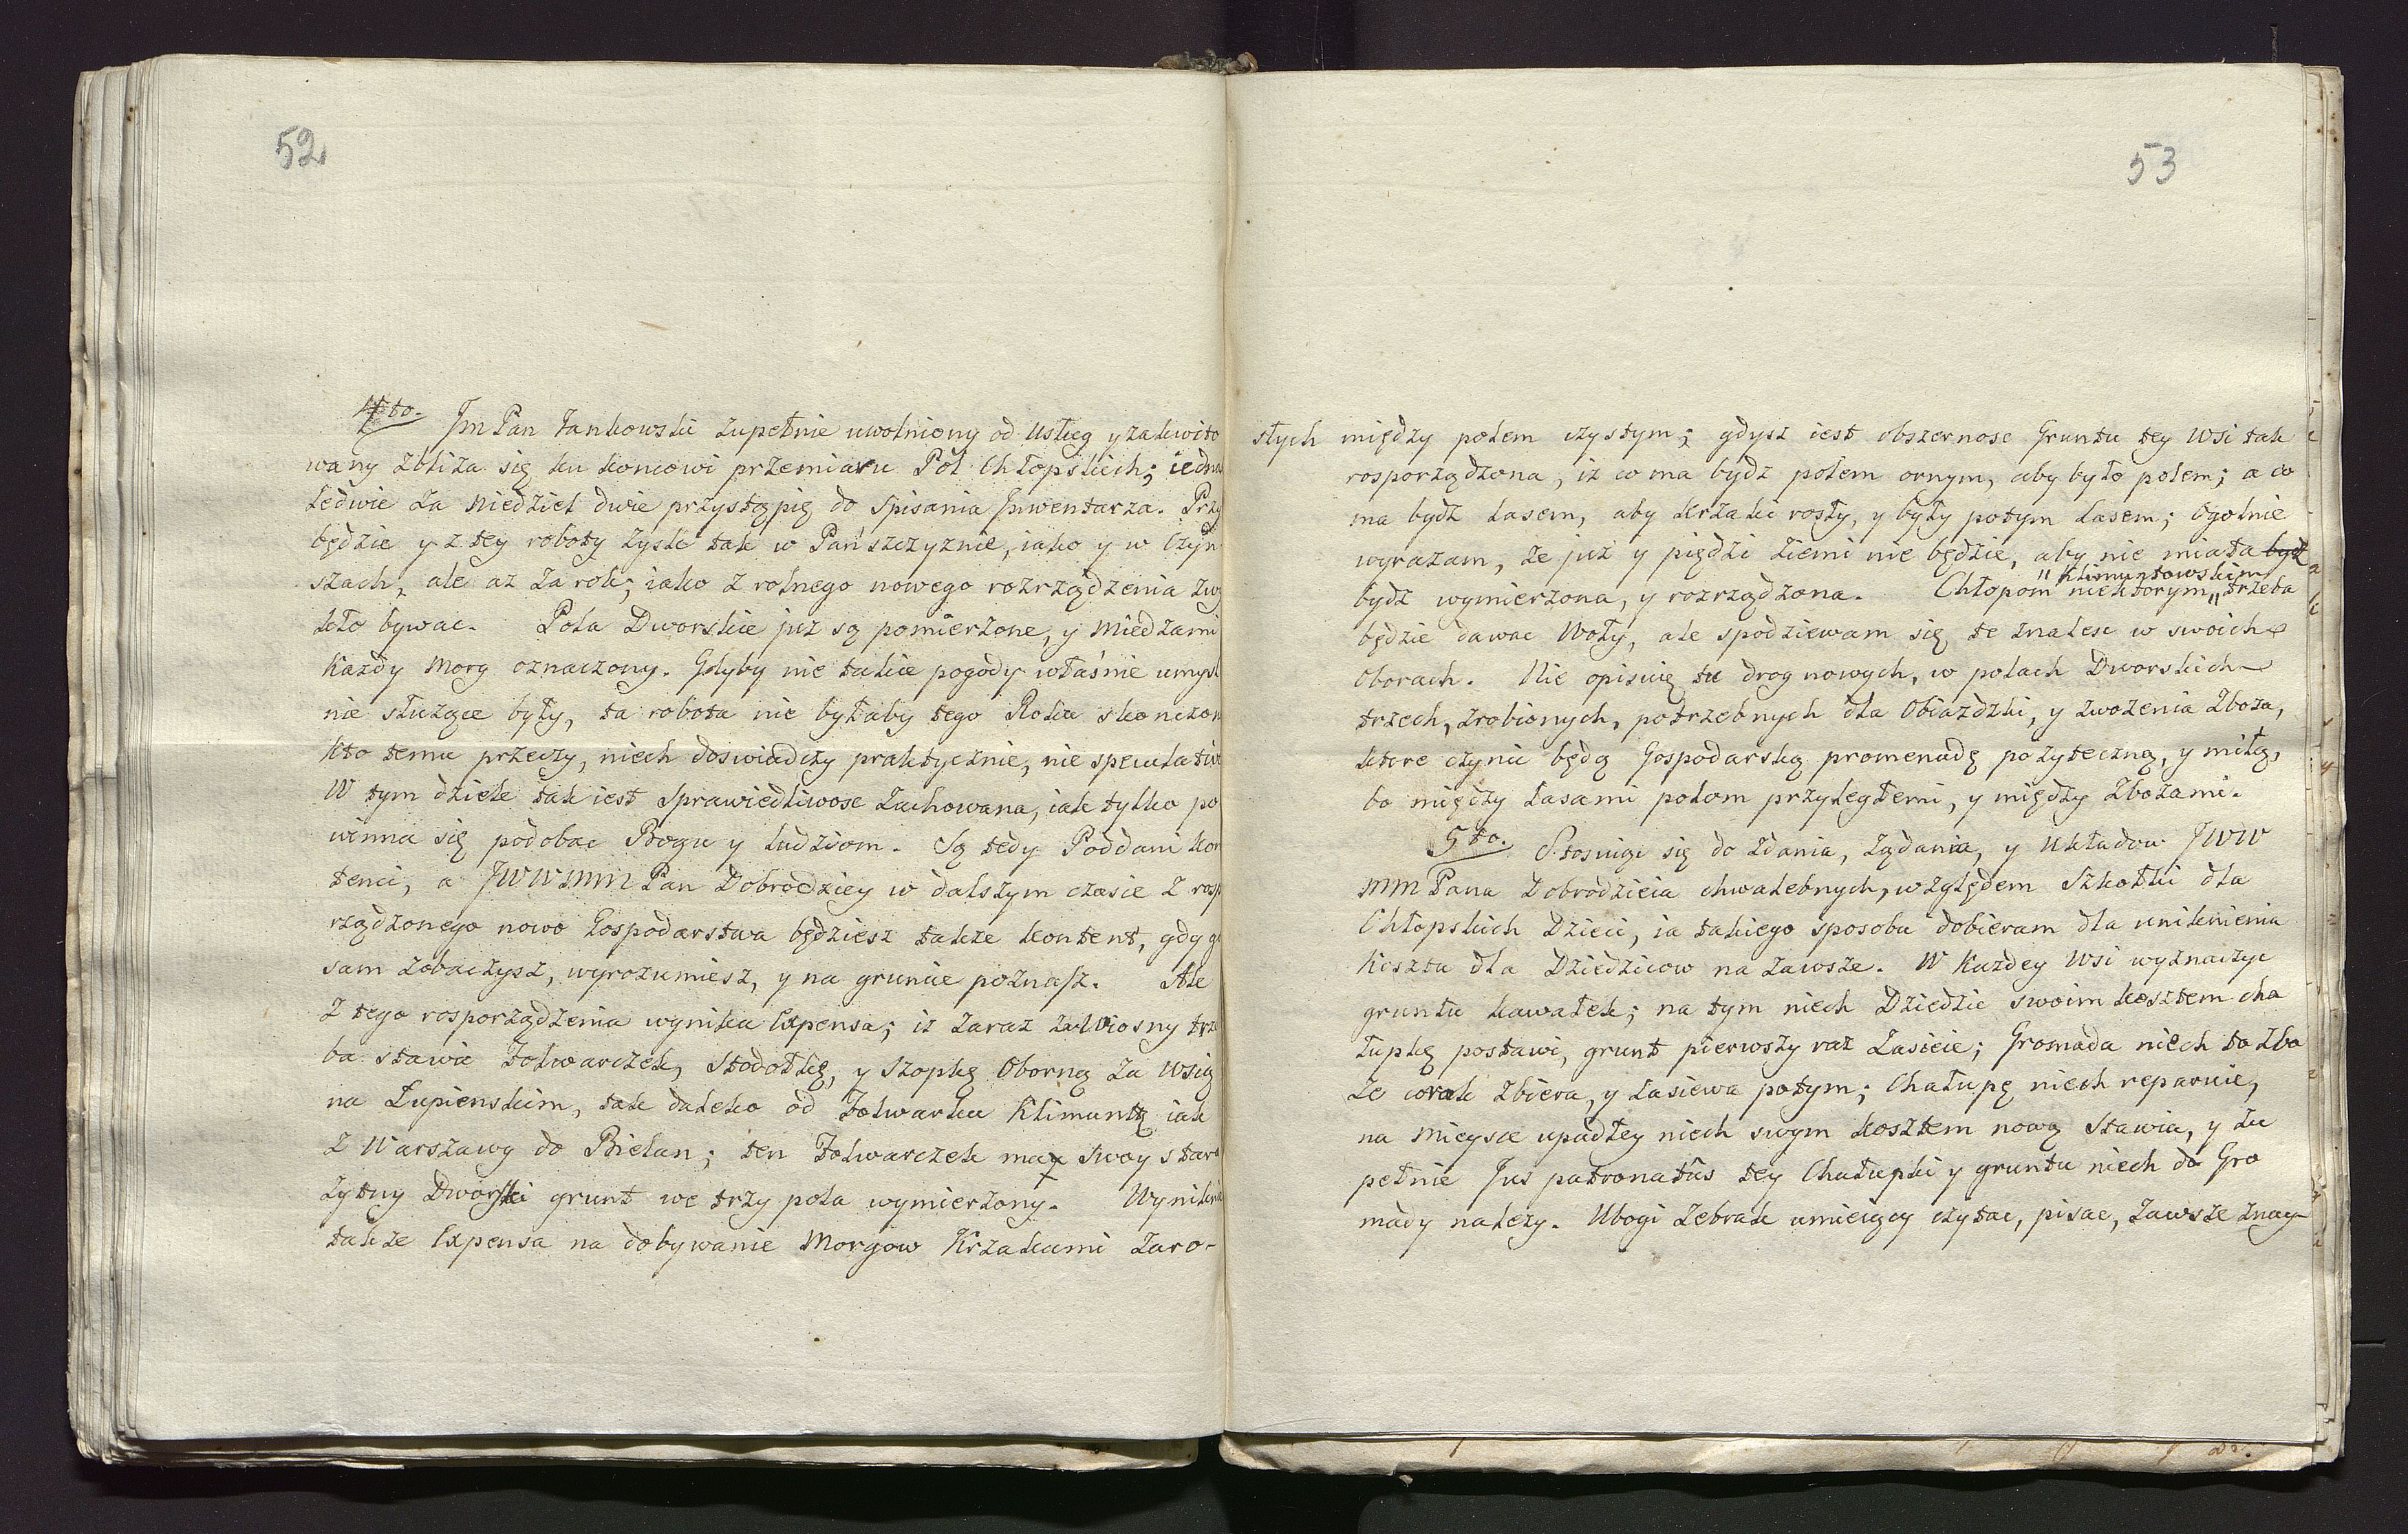 52
4to. Jm Pan Jankowski zupełnie uwolniony od Usług y zakwito
wany zbliża się ku koncowi przemiaru Pól Chłopskich; iedna
ledwie za niedziel dwie przystąpię do spisania Jnwentarza. Przy
będzie y z tey roboty zysk tak w Pańszczyznie, iako y w Czyn
szach, ale aż za rok; iako z rolnego nowego rozrządzenia zwy
kło bywac. Pola Dworskie już są pomierzone, y miedzami
każdy morg oznaczony. Gdyby nie takie pogody własnie umysl
nie służące były, ta robota nie byłaby tego Roku skonczon
kto temu przeczy, niech doswiadczy praktycznie, nie speculativ
W tym dziele tak iest sprawiedliwosc zachowana, iak tylko po
winna się podobac Bogu y ludziom. Są tedy Poddani kon
tenci, a JWWSMM Pan Dobrodziey w dalszym czasie z rosp
rządzonego nowo Gospodarstwa będziesz także kontent, gdy g
sam zobaczysz, wyrozumiesz, y na gruncie poznasz. Ale
z tego rosporządzenia wynika Expensa; iż zaraz z Wiosny trze
ba stawic folwarczek, Stodołkę, y szopkę Oborną za wsią
na Łupienskim, tak daleko od folwarku Klimunt, iak
z Warszawy do Bielan; ten folwarczek ma swoy staro
żytny Dworski grunt we trzy pola wymierzony. Wynikni
także Expensa na dobywanie Morgow Krzakami zaro-
53
słych między polem czystym; gdysz iest obszernosc Gruntu tey Wsi tak
rosporządzona, iż co ma bydz polem ornym, aby było polem; a co
ma bydz lasem, aby krzaki rosły, y były potym lasem; Ogolnie
wyrazam, że już y piędzi ziemi nie będzie, aby nie miała bydz
bydz wymierzona, y rozrządzona. Chłopom niektorym " Klimuntowskim " trzeba
będzie dawac Woły, ale spodziewam się te znalesc w swoich
Oborach. Nie opisuię tu drog nowych, w polach Dworskich
trzech, zrobionych, potrzebnych dla Obiazdzki, y zwożenia Zboża,
ktore czynic będą Gospodarską promenadę pożyteczną, y miłą,
bo między lasami polom przyległemi, y między Zbożami.
5to. Stosuiąc się do zdania, żądania, y Układow JWW
SMM Pana Dobrodzieia chwalebnych, względem Szkołki dla
Chłopskich Dzieci, ia takiego sposobu dobieram dla uniknienia
kosztu dla Dziedzicow na zawsze. W Kazdey Wsi wyznaczyc
gruntu kawałek; na tym niech Dziedzic swoim kosztem cha
łupkę postawi, grunt pierwszy raz zasieie; Gromada niech to zbo
że corok zbiera, y zasiewa potym; Chałupę niech reparuie,
na mieysce upadłey niech swym kosztem nową stawia, y zu
pełnie Jus patronatûs tey Chałupki y gruntu niech do Gro
mady należy. Ubogi żebrak umieiący czytac, pisac, zawsze znay-